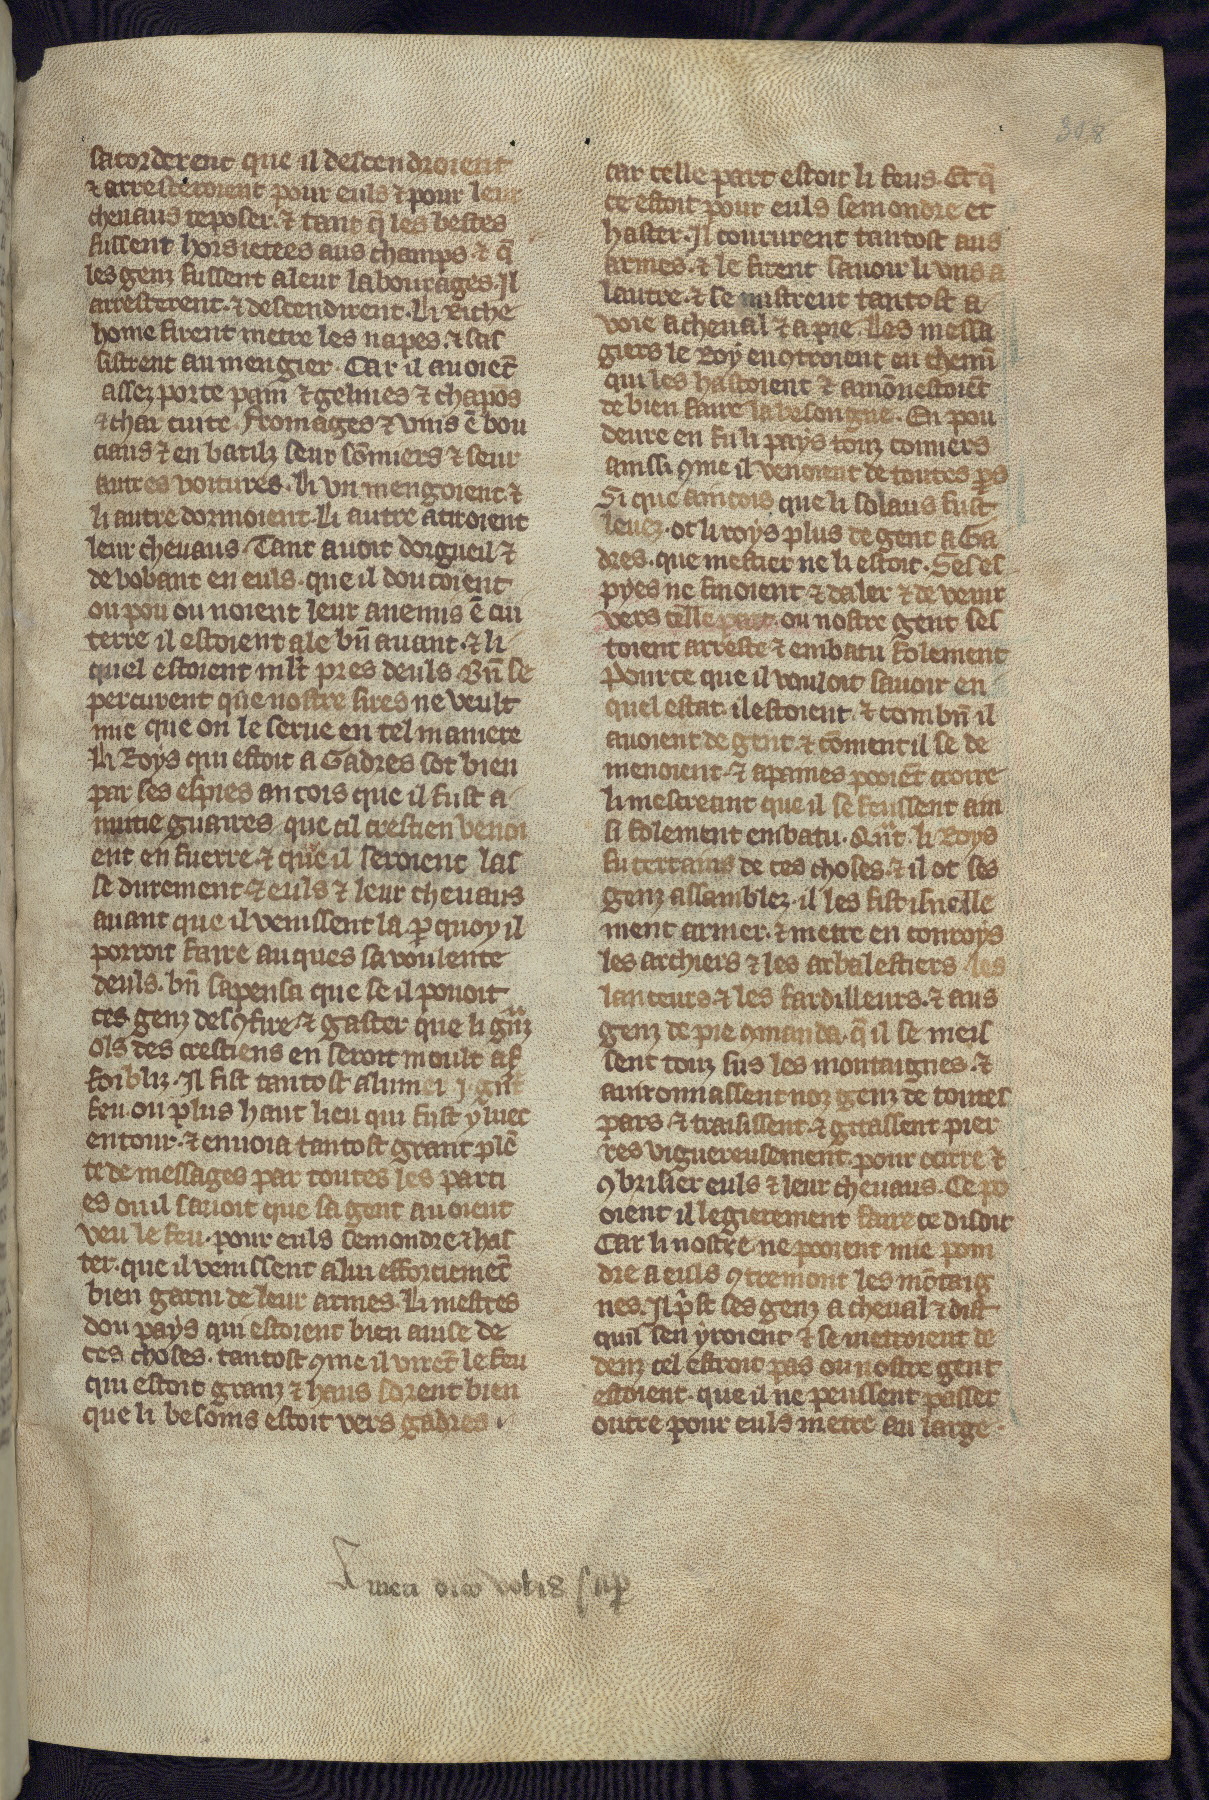 308
sacorderent que il descendroient
⁊ arresteroient pour euls ⁊ pour leur
cheuaus reposer. ⁊ tant q̃ les bestes
fussent hors ietees aus champs. ⁊ q̃
les genz fussent a leur labourages. Il
arresterent. ⁊ descendirent. Li Riche
home firent metre les napes. ⁊ sas
sistrent au mengier. Car il auoiẽt
assez porte pain ⁊ gelines ⁊ chapõs
⁊ char cuite. Fromages ⁊ vins ẽ bou
ciaus ⁊ en barilz seur sõmiers ⁊ seur
autres voitures. Li vn mengoient ⁊
li autre dormoient. Li autre atiroient
leur cheuaus. Tant auoit dorgueil ⁊
de bobant en euls. que il doutoient
ou pou ou noient leur anemis ẽ cui
terre il estoient ale bñ auant. ⁊ li
quel estoient ml̃t pres deuls. Bñ se
percurent que nostre sires ne veult
mie que on le serue en tel maniere
Li Roys qui estoit a Gadres sot bien
par ses espies ancois que il fust a
nuitie guaires que cil crestien venoi
ent en fuerre. ⁊ que il seroient las
se durement ⁊ euls ⁊ leur cheuaus
auant que il venissent la. ꝑ quoy il
porroit faire auques sa voulente
deuls. bñ sapensa que se il pouoit
ces genz desꝯfire. ⁊ gaster que li gñz
ols des crestiens en seroit moult af
foibliz. Il fist tantost alumer .j. gñt
feu. ou plus haut lieu qui fust yluec
entour. ⁊ enuoia tantost grant plẽ
te de messages par toutes les parti
es ou il sauoit que sa gent auoient
veu le feu. pour euls semondre ⁊ has
ter. que il venissent a lui efforciemẽt
bien garni de leur armes. Li mestres
dou pays qui estoient bien auise de
ces choses. tantost ꝯme il virẽt le feu
qui estoit granz ⁊ haus sorent bien
que li besoins estoit vers gadres.
car celle part estoit li feus. Et q̃
ce estoit pour euls semondre et
haster. Il coururent tantost aus
armes. ⁊ le firent sauoir li vns a
lautre. ⁊ se mistrent tantost a
voie a cheual ⁊ a pie. Les messa
giers le Roy enꝯtroient en chemĩ
qui les hastoient ⁊ amõnestoiẽt
de bien faire la besongne. En pou
deure en fu li pays touz couuers
ainssi ꝯme il venoient de toutes ꝑs
Si que aincois que li solaus fust
leuez. ot li roys plus de gent a Ga
dres. que mestier ne li estoit. Ses es
pyes ne finoient ⁊ daler ⁊ de venir
vers celle part. ou nostre gent ses
toient arreste ⁊ embatu folement
Pource que il vouloit sauoir en
quel estat. il estoient. ⁊ combñ il
auoient de gent. ⁊ cõment il se de
menoient. ⁊ apaines pooiẽt croire
li mescreant que il se feussent ain
si folement embatu. Qñt li Roys
fu certains de ces choses. ⁊ il ot ses
genz assamblez. il les fist isnelle
ment armer. ⁊ metre en conroys
les archiers ⁊ les arbalestiers les
lanceurs. ⁊ les fardilleurs. ⁊ aus
genz de pie ꝯmanda. q̃ il se meis
sent touz sus les montaignes. ⁊
auironnassent noz genz de toutes
pars. ⁊ traisissent. ⁊ gitassent pier
res viguereusement. pour ocirre ⁊
ꝯbrisier euls ⁊ leur cheuaus. Ce po
oient il legierement faire ce disoit
Car li nostre ne pooient mie poin
dre a euls ꝯtremont les mõtaig
nes. Il p̃st ses genz a cheual ⁊ dist
quil sen yroient ⁊ se metroient de
denz cel estroit pas ou nostre gent
estoient. que il ne peussent passer
outre pour euls metre au large.
Amen dico vobis sup